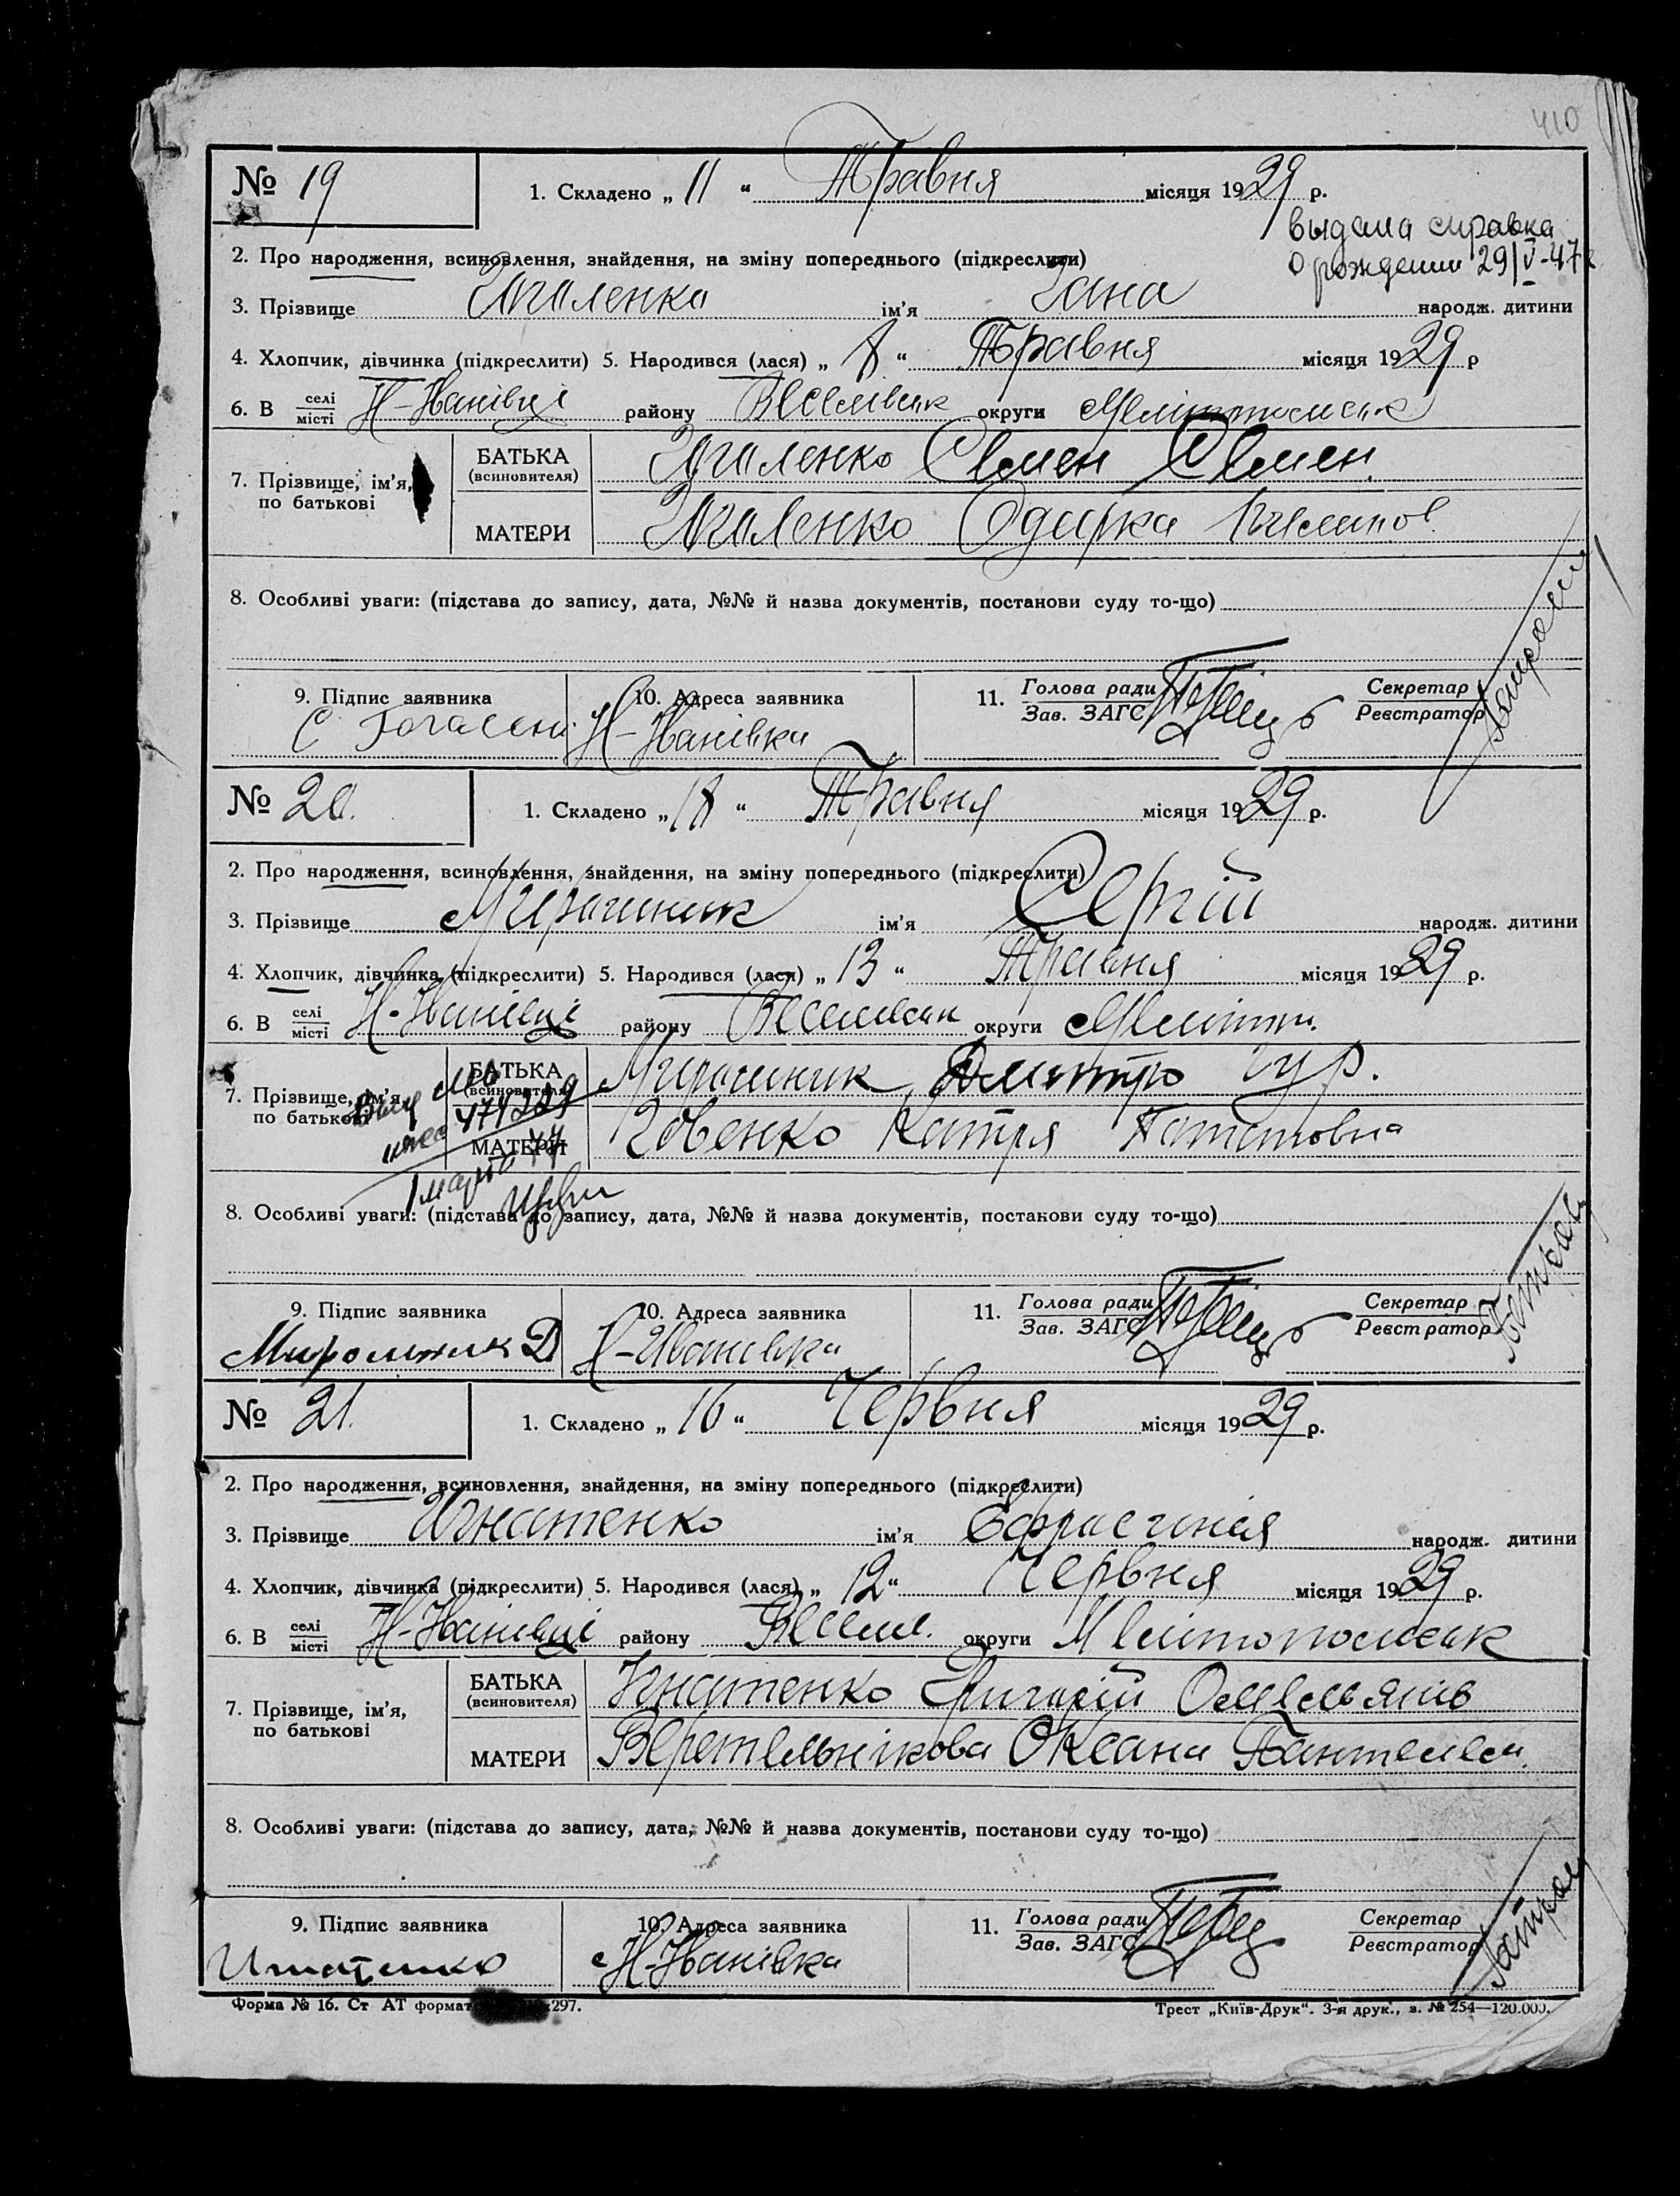 410
№ 19
1. Складено „ 11 “ Травня місяця 1929 р.
выдана справка
2. Про народження, всиновлення, знайдення, на зміну попереднього (підкреслити)
о рождении 29/V-47
3. Прізвище ім'я народж. дитини
4. Хлопчик, дівчинка (підкреслити) 5. Народився (лася) „ 8 “ Травня місяця 1929 р
6. В селі/місті Н-Іванівці району Веселівськ округи Мелітопольськ
7. Прізвище, ім'я, по батькові
БАТЬКА (всиновителя) Семен Семен.
МАТЕРИ Одарка
8. Особливі уваги: (підстава до запису, дата, №№ й назва документів, постанови суду то-що)
9. Підпис заявника
10. Адреса заявника Н-Іванівка
11. Голова ради/Зав. ЗАГС
Секретар/Реєстратор
№ 20.
1. Складено „ 18 “ Травня місяця 1929 р.
2. Про народження, всиновлення, знайдення, на зміну попереднього (підкреслити)
3. Прізвище Мирошник ім'я Сергій народж. дитини
4. Хлопчик, дівчинка (підкреслити) 5. Народився (лася) „ 13 “ Травня місяця 1929 р.
6. В селі/місті Н-Іванівці району Веселівськ округи Меліт.
7. Прізвище, ім'я, по батькові
БАТЬКА (всиновителя) Мирошник Дмитро Гур.
МАТЕРИ Катря
1 марта
8. Особливі уваги: (підстава до запису, дата, №№ й назва документів, постанови суду то-що)
9. Підпис заявника Мирошник Д
10. Адреса заявника Н-Ивановка
11. Голова ради/Зав. ЗАГС
Секретар/Реєстратор
№ 21.
1. Складено „ 16 “ Червня місяця 1929 р.
2. Про народження, всиновлення, знайдення, на зміну попереднього (підкреслити)
3. Прізвище Игнатенко ім'я Єфросинія народж. дитини
4. Хлопчик, дівчинка (підкреслити) 5. Народився (лася) „ 12 “ Червня місяця 1929 р.
6. В селі/місті Н-Іванівці району Весел. округи Мелітопольськ
7. Прізвище, ім'я, по батькові
БАТЬКА (всиновителя) Ігнатенко Григорій Омельянів
МАТЕРИ Веретельнікова Оксана Пантелем.
8. Особливі уваги: (підстава до запису, дата, №№ й назва документів, постанови суду то-що)
9. Підпис заявника Игнатенко
10. Адреса заявника Н-Іванівка
11. Голова ради/Зав. ЗАГС
Секретар/Реєстратор
Форма № 16. Ст АТ формат 297.
Трест „Київ-Друк“. 3-я друк., з. № 254—120.000.